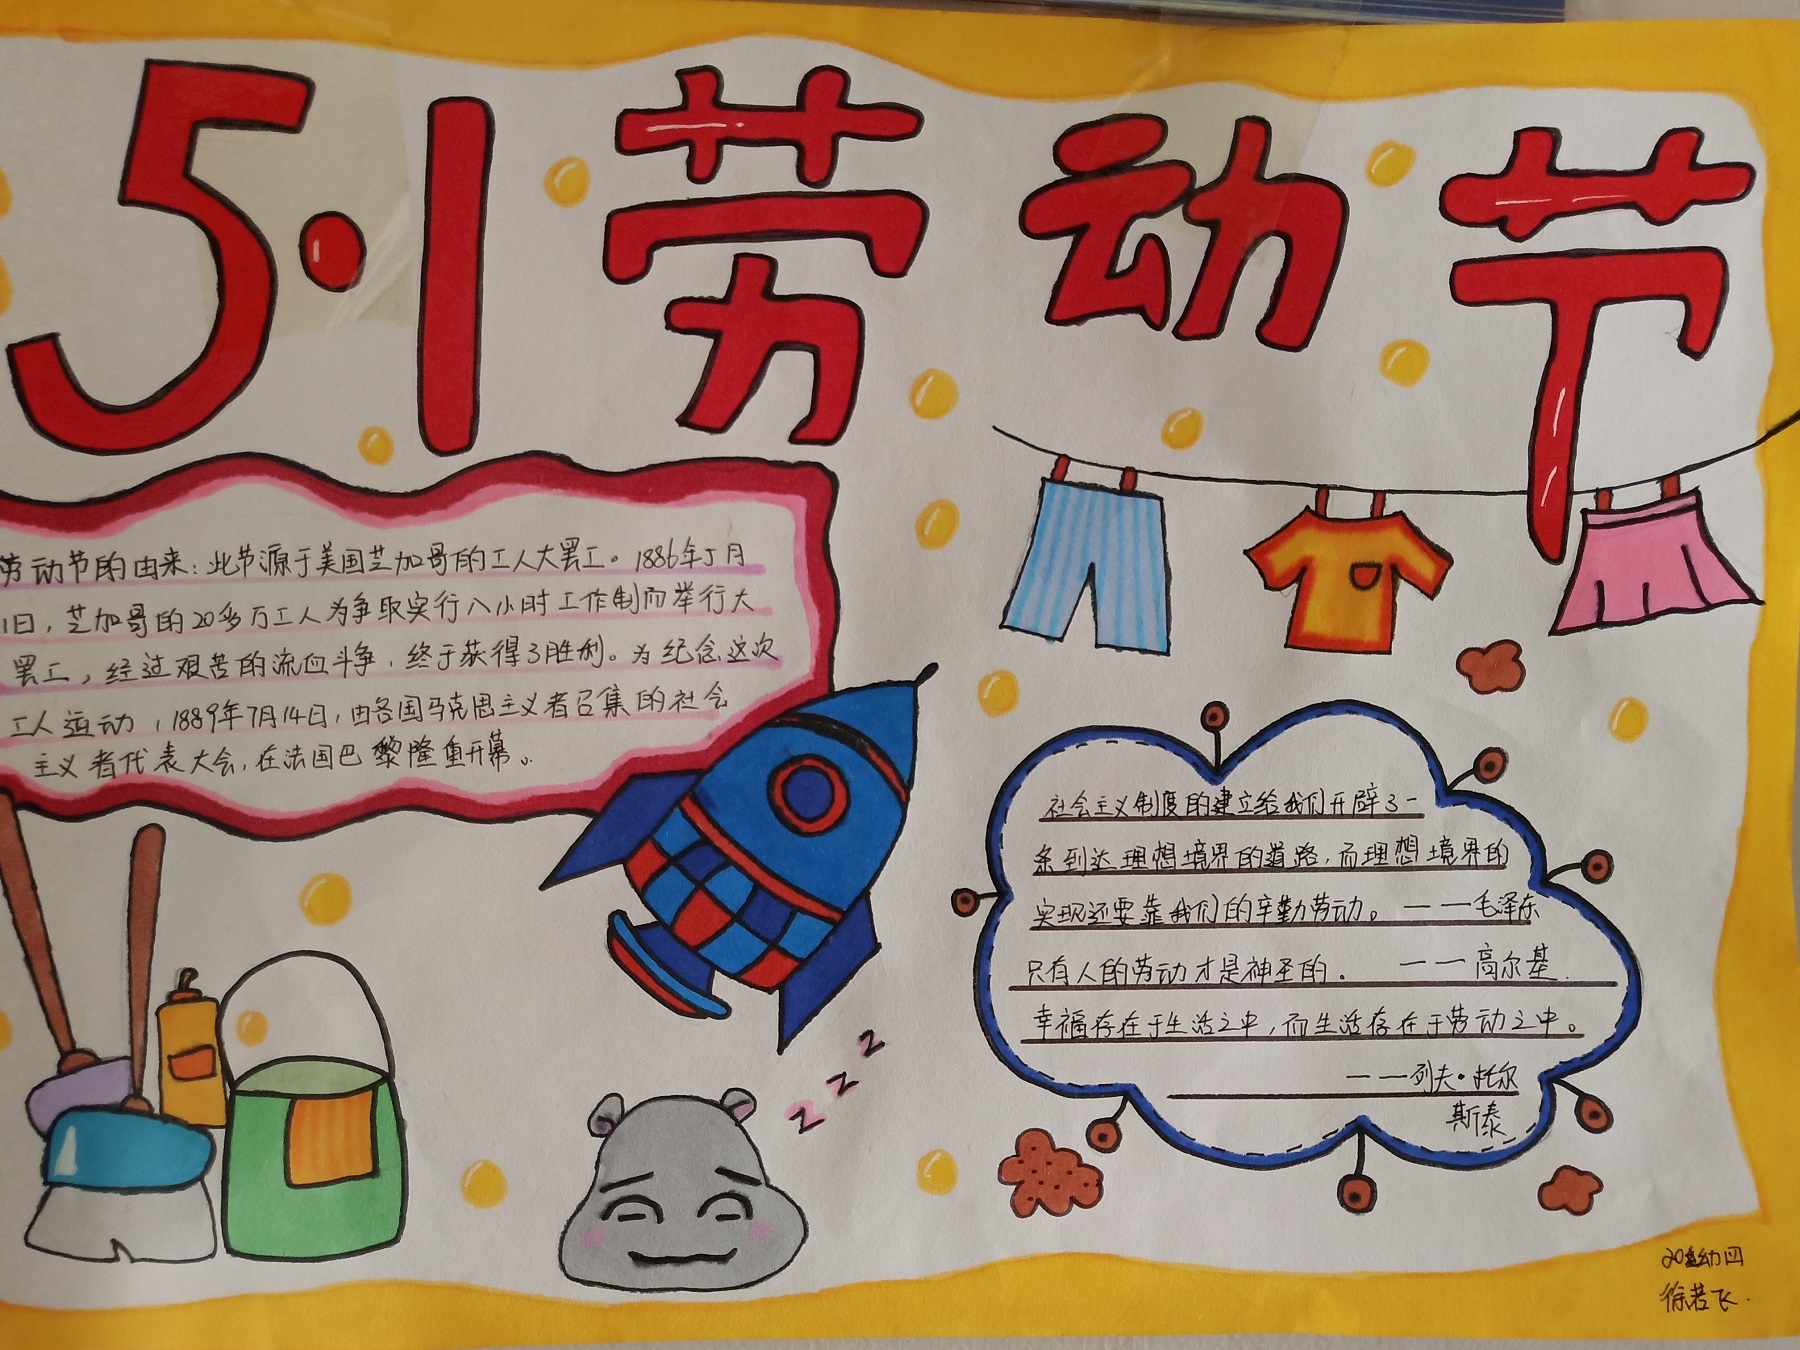 5·1劳动节
劳动节的由来:此节源于美国芝加哥的工人大罢工。1886年5月
1日,芝加哥的20多万工人为争取实行八小时工作制而举行大
罢工,经过艰苦的流血斗争,终于获得了胜利。为纪念这次
工人运动,1889年7月14日,由各国马克思主义者召集的社会
主义者代表大会,在法国巴黎隆重开幕。
社会主义制度的建立给我们开辟了一
条到达理想境界的道路,而理想境界的
实现还要靠我们的辛勤劳动。——毛泽东
只有人的劳动才是神圣的. ——高尔基.
幸福存在于生活之中,而生活存在于劳动之中。
——列夫·托尔
斯泰
z z z
20幼四
徐若飞.